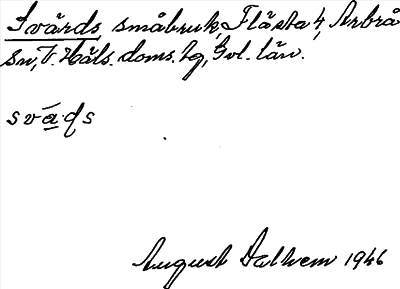 Svärds, småbruk, Flästa 4, Arbrå
sn, V. Häls. doms. lg, Gvl. län.
svạ́·ds
August Dalhem 1946